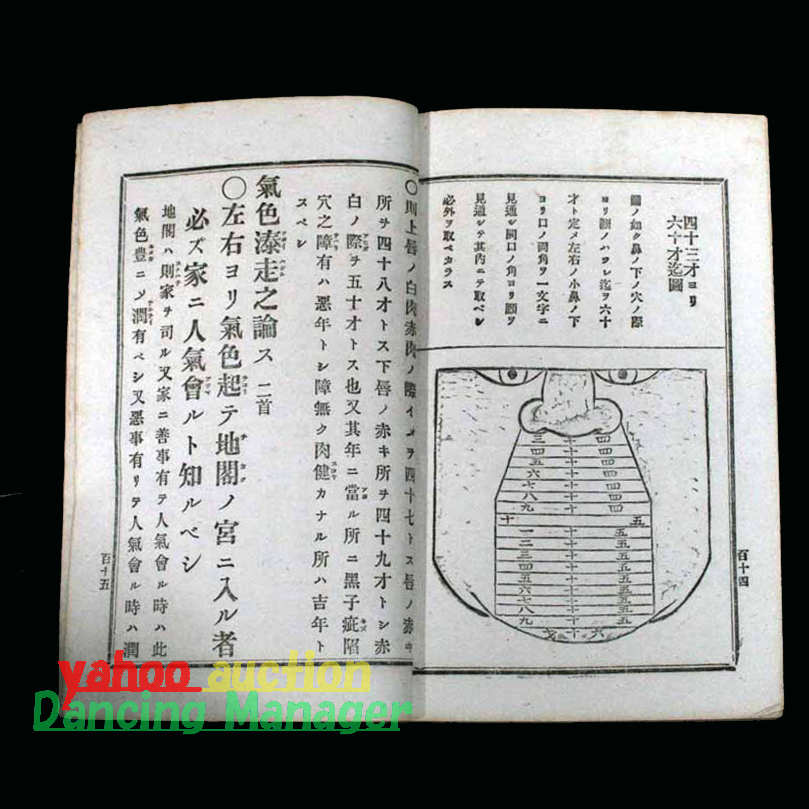 四十三才ヨリ
六十才迄圖
圖ノ如ク鼻ノ下ノ穴ノ際
ヨリ頤ノハヅレ迄ヲ六十
才ト定メ左右ノ小鼻ノ下
ヨリ口ノ両角ヲ一文字ニ
見通シ同口ノ角ヨリ頤ヲ
見通シテ其内ニテ取ベシ
必外ヲ取ベカラス
四十三
四十四
四十五
四十六
四十七
四十八
四十九
五十
五十一
五十二
五十三
五十四
五十五
五十六
五十七
五十八
五十九
六十
百十四
〇則上唇ノ白肉赤肉ノ際
ヲ四十七トス唇ノ赤キ
所ヲ四十八才トス下唇ノ赤キ所ヲ四十九才トシ赤
白ノ際ヲ五十才トス也又其年ニ當ル所ニ黒子疵陥
穴之障有ハ悪年トシ障無ク肉健カナル所ハ吉年ト
スベシ
氣色湊走之論ス 二首
〇左右ヨリ氣色起テ地閣ノ宮ニ入ル者
必ズ家ニ人氣會ルト知ルベシ
地閣ハ則家ヲ司ル又家ニ善事有テ人氣會ル時ハ此
氣色豊ニシ潤有ベシ又悪事有リテ人氣會ル時ハ潤
百十五
yahoo auction
Dancing Manager